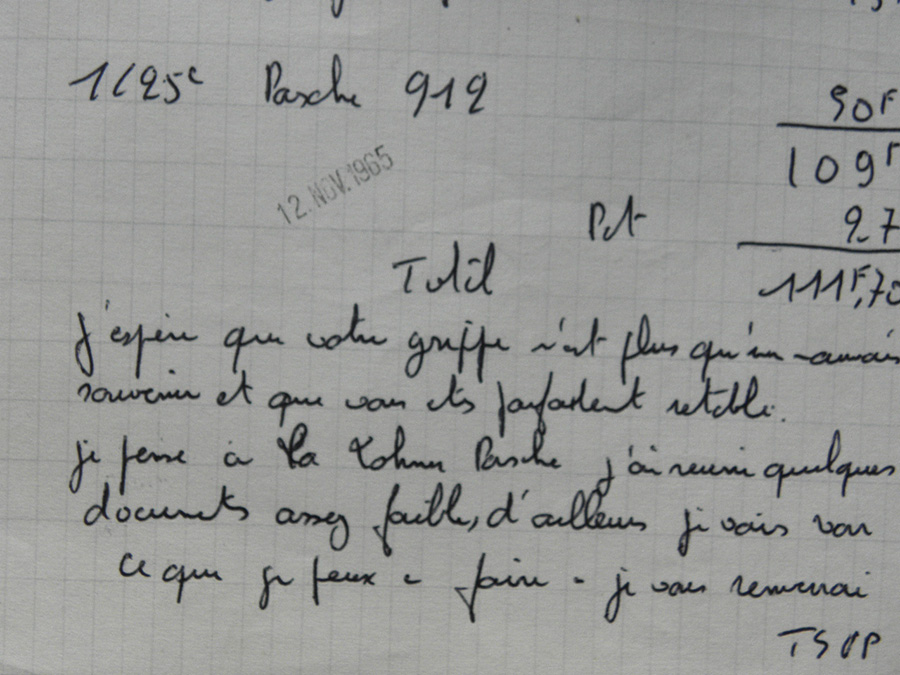 1/25e Porsche 912 90F
109F
12. NOV. 1965
Port 2 7
Total 111F,70
j'espère que votre grippe n'est plus qu'un mauvais
souvenir et que vous êtes parfaitement rétabli.
je pense à la Porsche j'ai reuni quelques
documents assez faible, d'ailleurs je vais voir
ce que je peux faire - je vous remercierai
TSVP